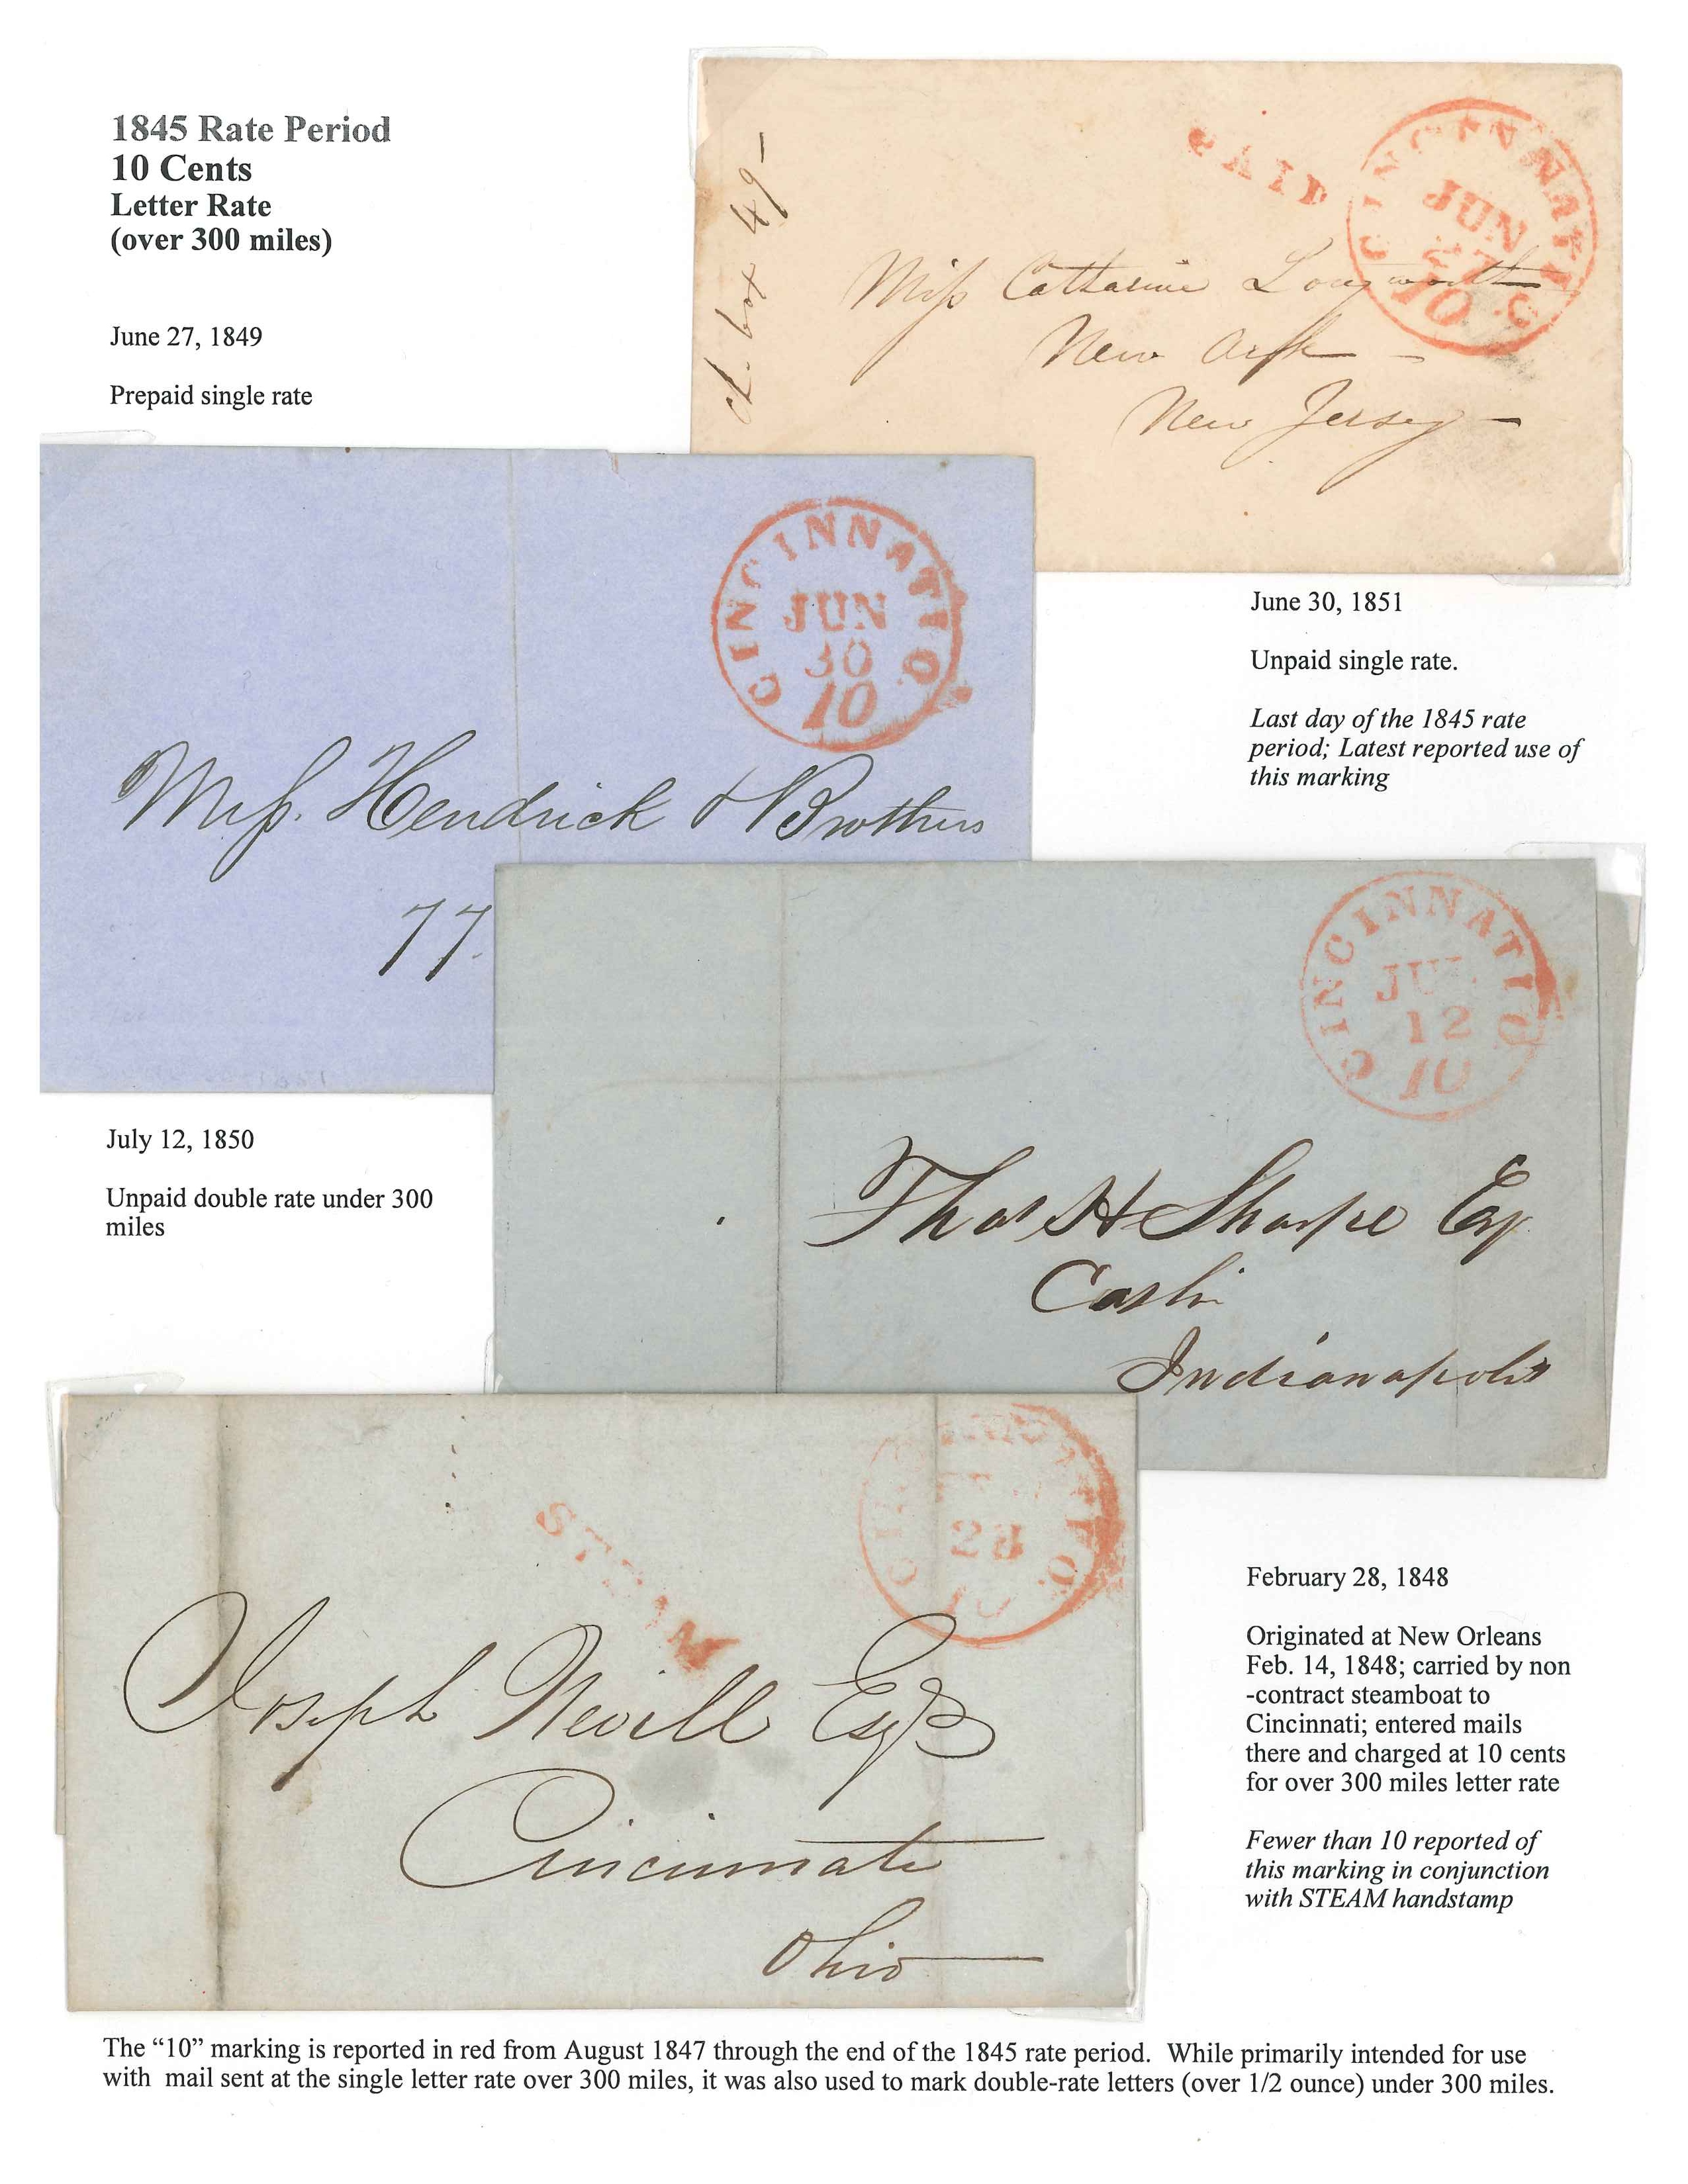 1845 Rate Period
10 Cents
Letter Rate
(over 300 miles)
June 27, 1849
Prepaid single rate
PAID
CINCINNATI O.
JUN
27
10
ch. box 49-
Miss Catharine Longworth
New Ark -
New Jersey -
CINCINNATI O.
JUN
30
10
Mess. Hendrick & Brothers
77
June 30, 1851
Unpaid single rate.
Last day of the 1845 rate
period; Latest reported use of
this marking
CINCINNATI O.
JUL
12
10
Thos H Sharpe Esq
Cash
Indianapolis
July 12, 1850
Unpaid double rate under 300
miles
STEAM
CINCINNATI O.
28
10
Joseph Nevill Esq
Cincinnati
Ohio
February 28, 1848
Originated at New Orleans
Feb. 14, 1848; carried by non
-contract steamboat to
Cincinnati; entered mails
there and charged at 10 cents
for over 300 miles letter rate
Fewer than 10 reported of
this marking in conjunction
with STEAM handstamp
The “10” marking is reported in red from August 1847 through the end of the 1845 rate period. While primarily intended for use
with mail sent at the single letter rate over 300 miles, it was also used to mark double-rate letters (over 1/2 ounce) under 300 miles.